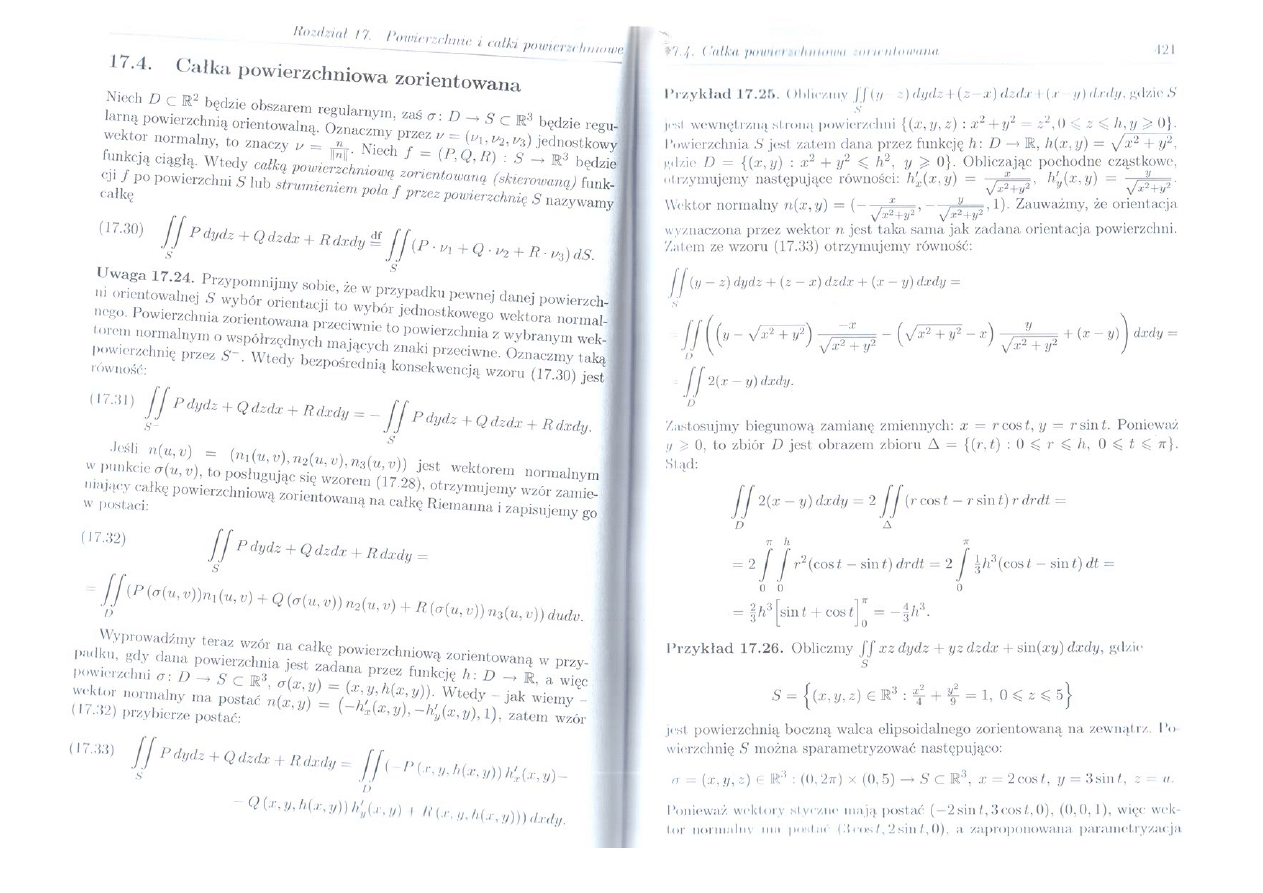 Rozdział 17. Powierzchnie i całki powierzchniowe
17.4. Całka powierzchniowa zorientowana
Niech D ⊂ ℝ² będzie obszarem regularnym, zaś σ: D → S ⊂ ℝ³ będzie regu-
larną powierzchnią orientowalną. Oznaczmy przez ν = (ν₁, ν₂, ν₃) jednostkowy
wektor normalny, to znaczy ν = n/‖n‖. Niech f = (P, Q, R) : S → ℝ³ będzie
funkcją ciągłą. Wtedy całką powierzchniową zorientowaną (skierowaną) funk-
cji f po powierzchni S lub strumieniem pola f przez powierzchnię S nazywamy
całkę
(17.30) ∬_S P dydz + Q dzdx + R dxdy ≝ ∬_S (P · ν₁ + Q · ν₂ + R · ν₃) dS.
Uwaga 17.24. Przypomnijmy sobie, że w przypadku pewnej danej powierzch-
ni orientowalnej S wybór orientacji to wybór jednostkowego wektora normal-
nego. Powierzchnia zorientowana przeciwnie to powierzchnia z wybranym wek-
torem normalnym o współrzędnych mających znaki przeciwne. Oznaczmy taką
powierzchnię przez S⁻. Wtedy bezpośrednią konsekwencją wzoru (17.30) jest
równość:
(17.31) ∬_{S⁻} P dydz + Q dzdx + R dxdy = − ∬_S P dydz + Q dzdx + R dxdy.
Jeśli n(u, v) = (n₁(u, v), n₂(u, v), n₃(u, v)) jest wektorem normalnym
w punkcie σ(u, v), to posługując się wzorem (17.28), otrzymujemy wzór zamie-
niający całkę powierzchniową zorientowaną na całkę Riemanna i zapisujemy go
w postaci:
(17.32) ∬_S P dydz + Q dzdx + R dxdy =
= ∬_D (P (σ(u, v))n₁(u, v) + Q (σ(u, v)) n₂(u, v) + R (σ(u, v)) n₃(u, v)) dudv.
Wyprowadźmy teraz wzór na całkę powierzchniową zorientowaną w przy-
padku, gdy dana powierzchnia jest zadana przez funkcję h: D → ℝ, a więc
powierzchni σ: D → S ⊂ ℝ³, σ(x, y) = (x, y, h(x, y)). Wtedy – jak wiemy –
wektor normalny ma postać n(x, y) = (−h′ₓ(x, y), −h′_y(x, y), 1), zatem wzór
(17.32) przybierze postać:
(17.33) ∬_S P dydz + Q dzdx + R dxdy = ∬_D (−P (x, y, h(x, y)) h′ₓ(x, y)−
− Q (x, y, h(x, y)) h′_y(x, y) + R (x, y, h(x, y))) dxdy.
17.4. Całka powierzchniowa zorientowana 421
Przykład 17.25. Obliczmy ∬_S (y − z) dydz + (z − x) dzdx + (x − y) dxdy, gdzie S
jest wewnętrzną stroną powierzchni {(x, y, z) : x² + y² = z², 0 ⩽ z ⩽ h, y ⩾ 0}.
Powierzchnia S jest zatem dana przez funkcję h: D → ℝ, h(x, y) = √(x² + y²),
gdzie D = {(x, y) : x² + y² ⩽ h², y ⩾ 0}. Obliczając pochodne cząstkowe,
otrzymujemy następujące równości: h′ₓ(x, y) = x/√(x²+y²), h′_y(x, y) = y/√(x²+y²).
Wektor normalny n(x, y) = (−x/√(x²+y²), −y/√(x²+y²), 1). Zauważmy, że orientacja
wyznaczona przez wektor n jest taka sama jak zadana orientacja powierzchni.
Zatem ze wzoru (17.33) otrzymujemy równość:
∬_S (y − z) dydz + (z − x) dzdx + (x − y) dxdy =
= ∬_D ((y − √(x² + y²)) −x/√(x² + y²) − (√(x² + y²) − x) y/√(x² + y²) + (x − y)) dxdy =
= ∬_D 2(x − y) dxdy.
Zastosujmy biegunową zamianę zmiennych: x = r cos t, y = r sin t. Ponieważ
y ⩾ 0, to zbiór D jest obrazem zbioru Δ = {(r, t) : 0 ⩽ r ⩽ h, 0 ⩽ t ⩽ π}.
Stąd:
∬_D 2(x − y) dxdy = 2 ∬_Δ (r cos t − r sin t) r drdt =
= 2 ∫₀^π ∫₀^h r²(cos t − sin t) drdt = 2 ∫₀^π ⅓h³(cos t − sin t) dt =
= ⅔h³ [sin t + cos t]₀^π = −4/3 h³.
Przykład 17.26. Obliczmy ∬_S xz dydz + yz dzdx + sin(xy) dxdy, gdzie
S = {(x, y, z) ∈ ℝ³ : x²/4 + y²/9 = 1, 0 ⩽ z ⩽ 5}
jest powierzchnią boczną walca elipsoidalnego zorientowaną na zewnątrz. Po-
wierzchnię S można sparametryzować następująco:
σ = (x, y, z) ∈ ℝ³ : (0, 2π) × (0, 5) → S ⊂ ℝ³, x = 2 cos t, y = 3 sin t, z = u.
Ponieważ wektory styczne mają postać (−2 sin t, 3 cos t, 0), (0, 0, 1), więc wek-
tor normalny ma postać (3 cos t, 2 sin t, 0), a zaproponowana parametryzacja